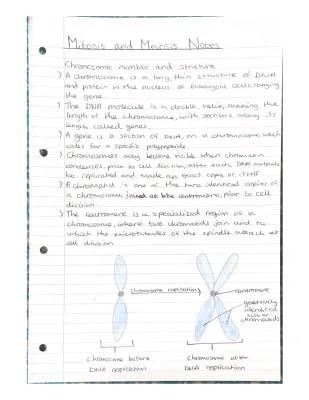 Mitosis and Meiosis Notes
Chromosome number and structure
) A chromosome is a long, thin structure of DNA
and protein in the nucleus of eukaryotic cells, carrying
the gene.
) The DNA molecule is a double helix, running the
length of the chromosome, with sections along its
length called genes.
) A gene is a section of DNA, on a chromosome, which
codes for a specific polypeptide.
) Chromosomes only become visible when chromatin
condenses, prior to cell division, after each DNA molecule
be replicated and made an exact copy of itself
) A chromatid is one of the two identical copies of
a chromosome, joined at the centromere, prior to cell
division.
) The centromere is a specialised region of a
chromosome, where two chromatids join and to
which the microtubules of the spindle attach at
cell division
chromosome replication
centromere
genetically
identical
sister
chromatids
Chromosome before
DNA replication
Chromosome after
DNA replication